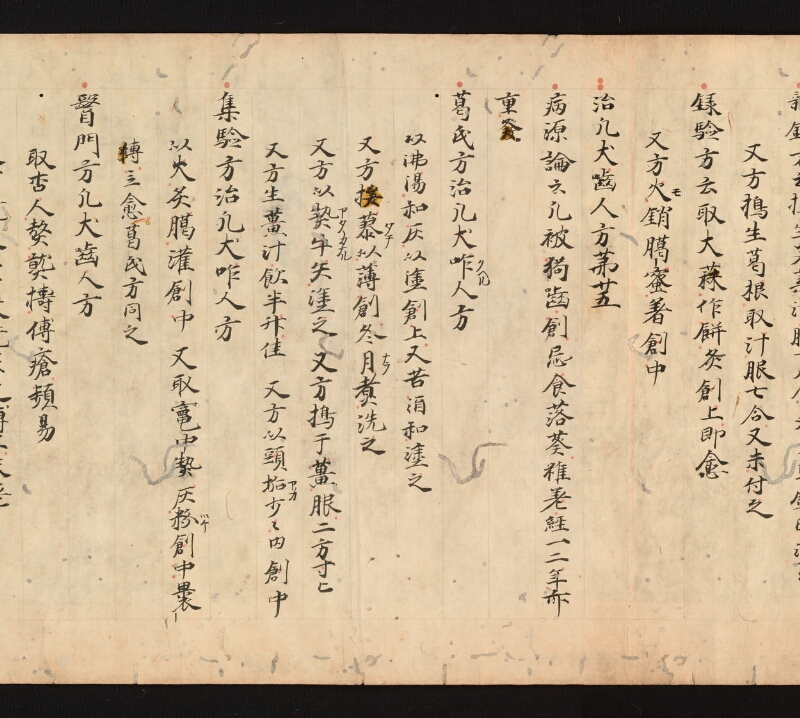 又方搗生葛根取汁服七合又末付之
錄驗方云取大蒜作餅灸創上即愈
又方火銷臈蜜著創中
治凡犬齒人方第廿五
病源論云凡被猘齒創忌食落葵雖差經一二年亦
重發
葛氏方治凡犬咋人方
以沸湯和灰以塗創上又苦酒和塗之
又方搗蓼以薄創冬月煮洗之
又方以𤍠牛矢塗之 又方搗干薑服二方寸匕
又方生薑汁飲半升佳 又方以頭垢少〻内創中
集驗方治凡犬咋人方
以火炙臈灌創中 又取竈中𤍠灰粉創中裹
轉立愈葛氏方同之
醫門方凡犬齒人方
取杏人熬𤍠搗傅瘡頻易